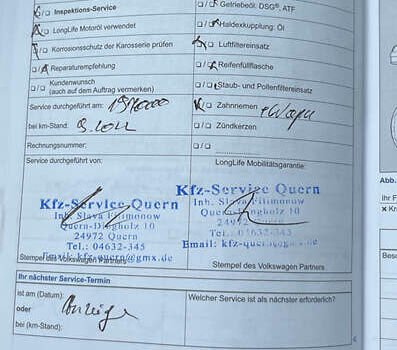 Inspektions-Service
Getriebeöl: DSG®, ATF
LongLife Motoröl verwendet
Haldexkupplung: Öl
Korrosionsschutz der Karosserie prüfen
Luftfiltereinsatz
Reparaturempfehlung
Reifenfüllflasche
Kundenwunsch
(auch auf dem Auftrag vermerken)
Staub- und Pollenfiltereinsatz
Service durchgeführt am:
Zahnriemen
bei km-Stand:
Zündkerzen
Rechnungsnummer:
Service durchgeführt von:
LongLife Mobilitätsgarantie:
Kfz-Service Quern
Inh. Slava Filimonow
Quern-Dingholz 10
24972 Quern
Tel.: 04632-345
Email: kfz-quern@gmx.de
Stempel des Volkswagen Partners
Kfz-Service Quern
Inh. Slava Filimonow
Quern-Dingholz 10
24972 Quern
Tel.: 04632-345
Stempel des Volkswagen Partners
Ihr nächster Service-Termin
ist am (Datum):
Welcher Service ist als nächster erforderlich?
oder
Anzeige
bei (km-Stand):
Abb.
Ihr F